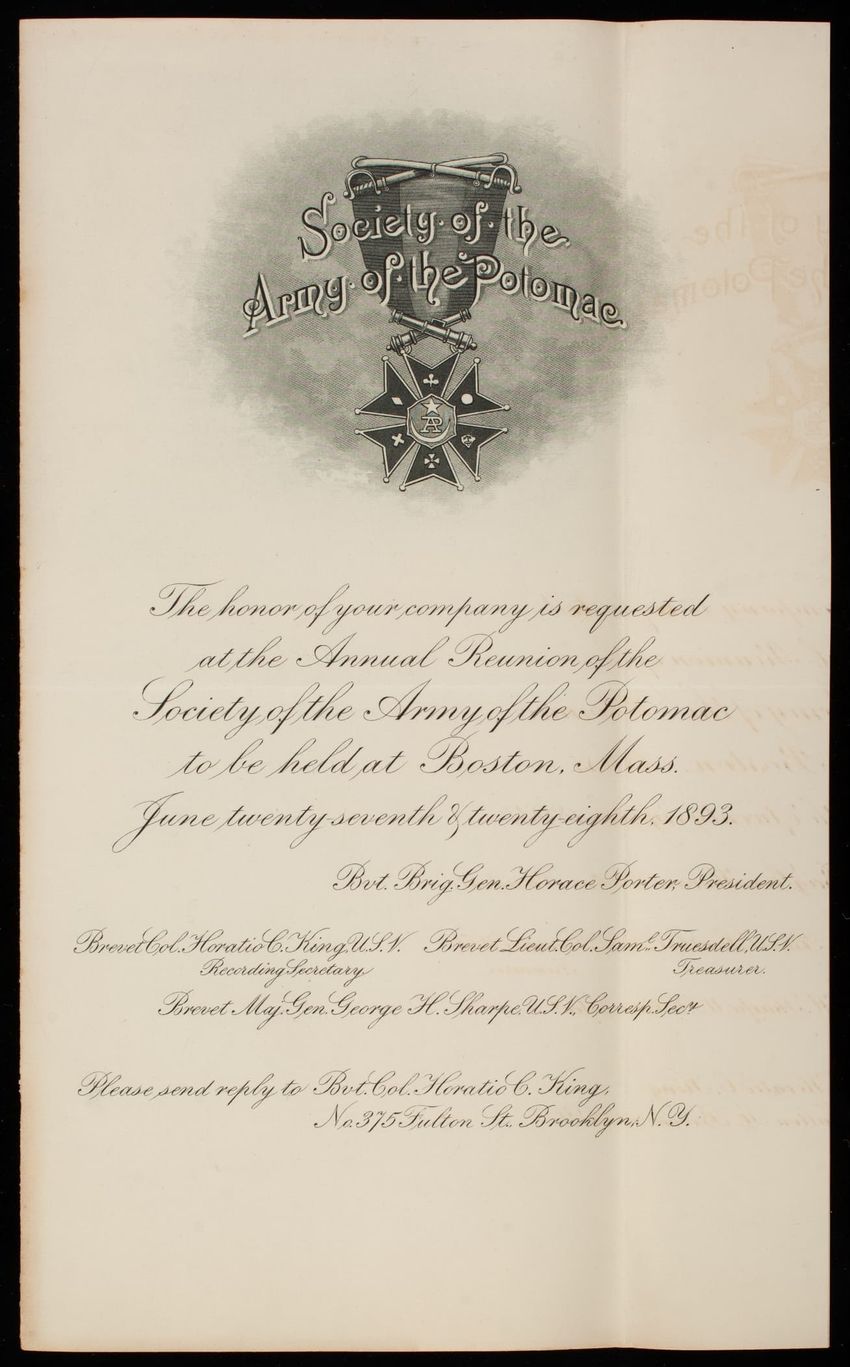 Society of the
Army of the Potomac
The honor of your company is requested
at the Annual Reunion of the
Society of the Army of the Potomac
to be held at Boston, Mass.
June twenty-seventh & twenty-eighth, 1893.
Bvt. Brig. Gen. Horace Porter, President.
Brevet Col. Horatio C. King, U.S.V. Brevet Lieut. Col. Saml. Truesdell, U.S.V.
Recording Secretary Treasurer.
Brevet Maj. Gen. George H. Sharpe, U.S.V., Corresp. Secy.
Please send reply to Bvt. Col. Horatio C. King,
No. 375 Fulton St., Brooklyn, N.Y.